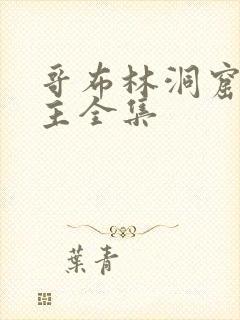 哥布林洞窟
主全集
葉青